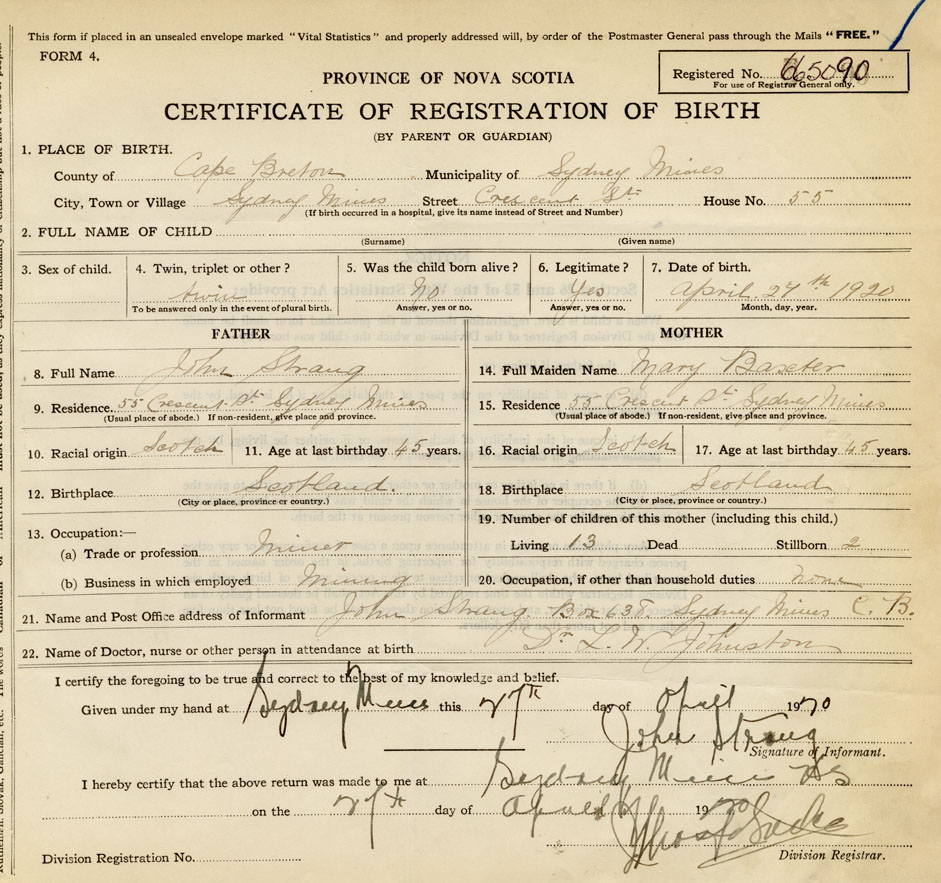 This form if placed in an unsealed envelope marked "Vital Statistics" and properly addressed will, by order of the Postmaster General pass through the Mails "FREE."
FORM 4.
Registered No. 65090
For use of Registrar General only.
PROVINCE OF NOVA SCOTIA
CERTIFICATE OF REGISTRATION OF BIRTH
(BY PARENT OR GUARDIAN)
1. PLACE OF BIRTH.
County of Cape Breton Municipality of Sydney Mines
City, Town or Village Sydney Mines Street Crescent St. House No. 55
(If birth occurred in a hospital, give its name instead of Street and Number)
2. FULL NAME OF CHILD
(Surname) (Given name)
3. Sex of child. 4. Twin, triplet or other? 5. Was the child born alive? 6. Legitimate? 7. Date of birth.
twin No Yes April 27th 1920
To be answered only in the event of plural birth. Answer, yes or no. Answer, yes or no. Month, day, year.
FATHER
8. Full Name John Strang
9. Residence. 55 Crescent St. Sydney Mines
(Usual place of abode.) If non-resident, give place and province.
10. Racial origin Scotch 11. Age at last birthday 45 years.
12. Birthplace Scotland.
(City or place, province or country.)
13. Occupation:—
(a) Trade or profession Miner
(b) Business in which employed Mining
MOTHER
14. Full Maiden Name Mary Baxter
15. Residence 55 Crescent St. Sydney Mines
(Usual place of abode.) If non-resident, give place and province.
16. Racial origin Scotch 17. Age at last birthday 45 years.
18. Birthplace Scotland
(City or place, province or country.)
19. Number of children of this mother (including this child.)
Living 13 Dead Stillborn 2
20. Occupation, if other than household duties none
21. Name and Post Office address of Informant John Strang. Box Sydney Mines C. B.
22. Name of Doctor, nurse or other person in attendance at birth Dr. L. W. Johnston
I certify the foregoing to be true and correct to the best of my knowledge and belief.
Given under my hand at Sydney Mines this 27th day of April 1920
John Strang
Signature of Informant.
I hereby certify that the above return was made to me at Sydney Mines NS
on the 27th day of April 1920
Division Registration No.
Division Registrar.